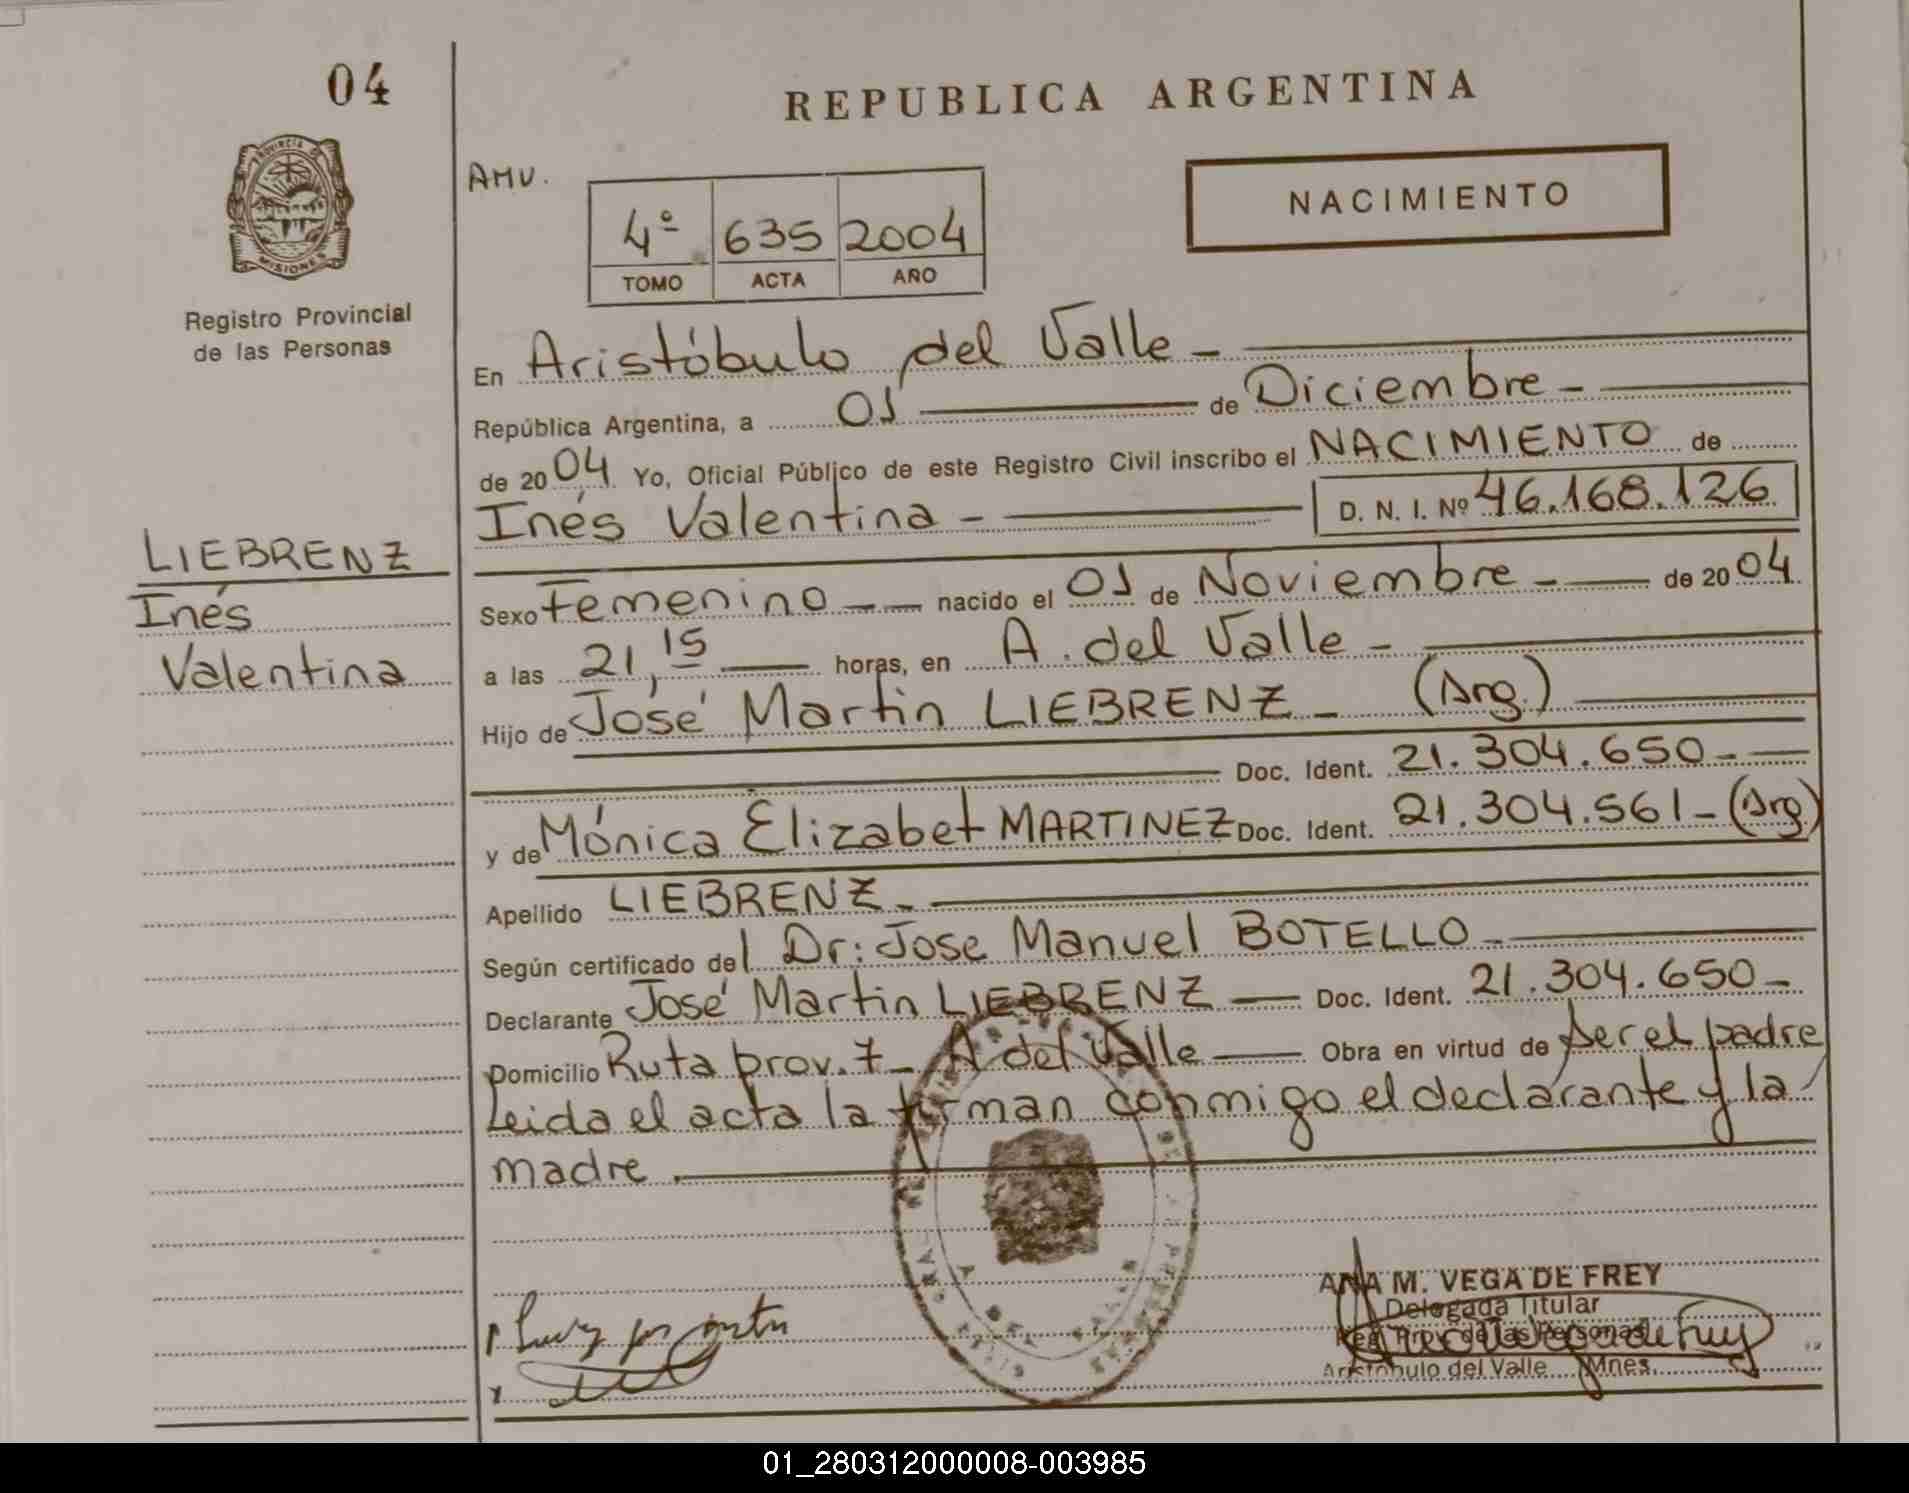 04
REPUBLICA ARGENTINA
PROVINCIA DE
MISIONES
Registro Provincial
de las Personas
AMV.
4º 635 2004
TOMO ACTA AÑO
NACIMIENTO
En Aristóbulo del Valle -
República Argentina, a 01 de Diciembre -
de 2004 Yo, Oficial Público de este Registro Civil inscribo el NACIMIENTO de
Inés Valentina - D. N. I. Nº 46.168.126
LIEBRENZ
Inés
Valentina
Sexo Femenino - nacido el 01 de Noviembre - de 2004
a las 21,15 horas, en A. del Valle -
Hijo de José Martin LIEBRENZ - (Arg.)
Doc. Ident. 21.304.650 -
y de Mónica Elizabet MARTINEZ Doc. Ident. 21.304.561 - (Arg)
Apellido LIEBRENZ -
Según certificado del Dr: Jose Manuel BOTELLO -
Declarante José Martin LIEBRENZ - Doc. Ident. 21.304.650 -
Domicilio Ruta prov. 7 - A del Valle - Obra en virtud de ser el padre
Leida el acta la firman conmigo el declarante y la
madre.
ANA M. VEGA DE FREY
Delegada Titular
Reg. Prov. de las Personas
Aristóbulo del Valle Mnes.
01_280312000008-003985